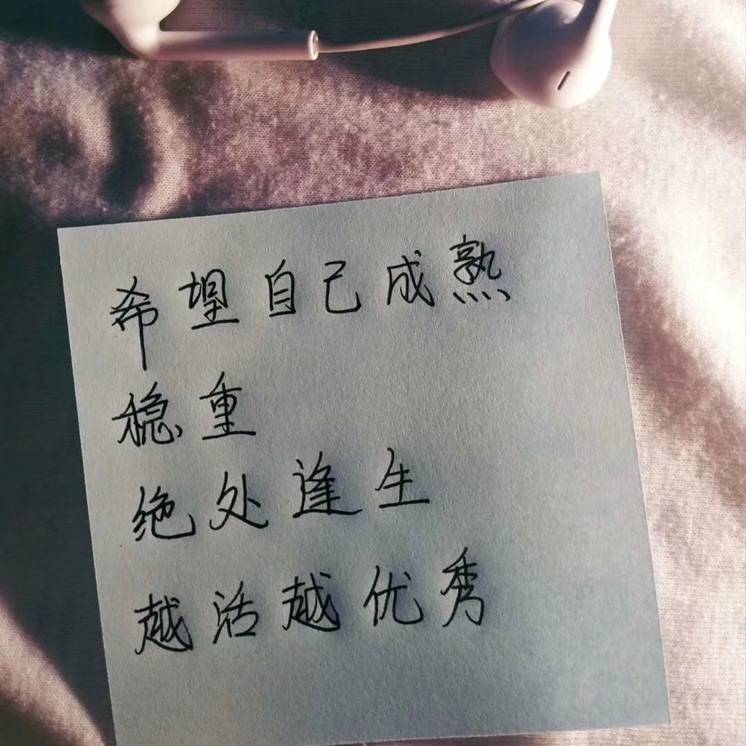 希望自己成熟
稳重
绝处逢生
越活越优秀